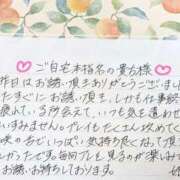 ご自宅本指名の貴方様
昨日はお誘い頂きありがとうございま
たすぐにお誘い頂き、しかも仕事終
疲れている所会えて、いつも気を遣わせ
いすみません。プレイもたくさん攻めてく
の舌でいっぱい気持ち良くなって頂
しかったです。毎回プレも見るのが楽しみで
お誘いお待ちしております。